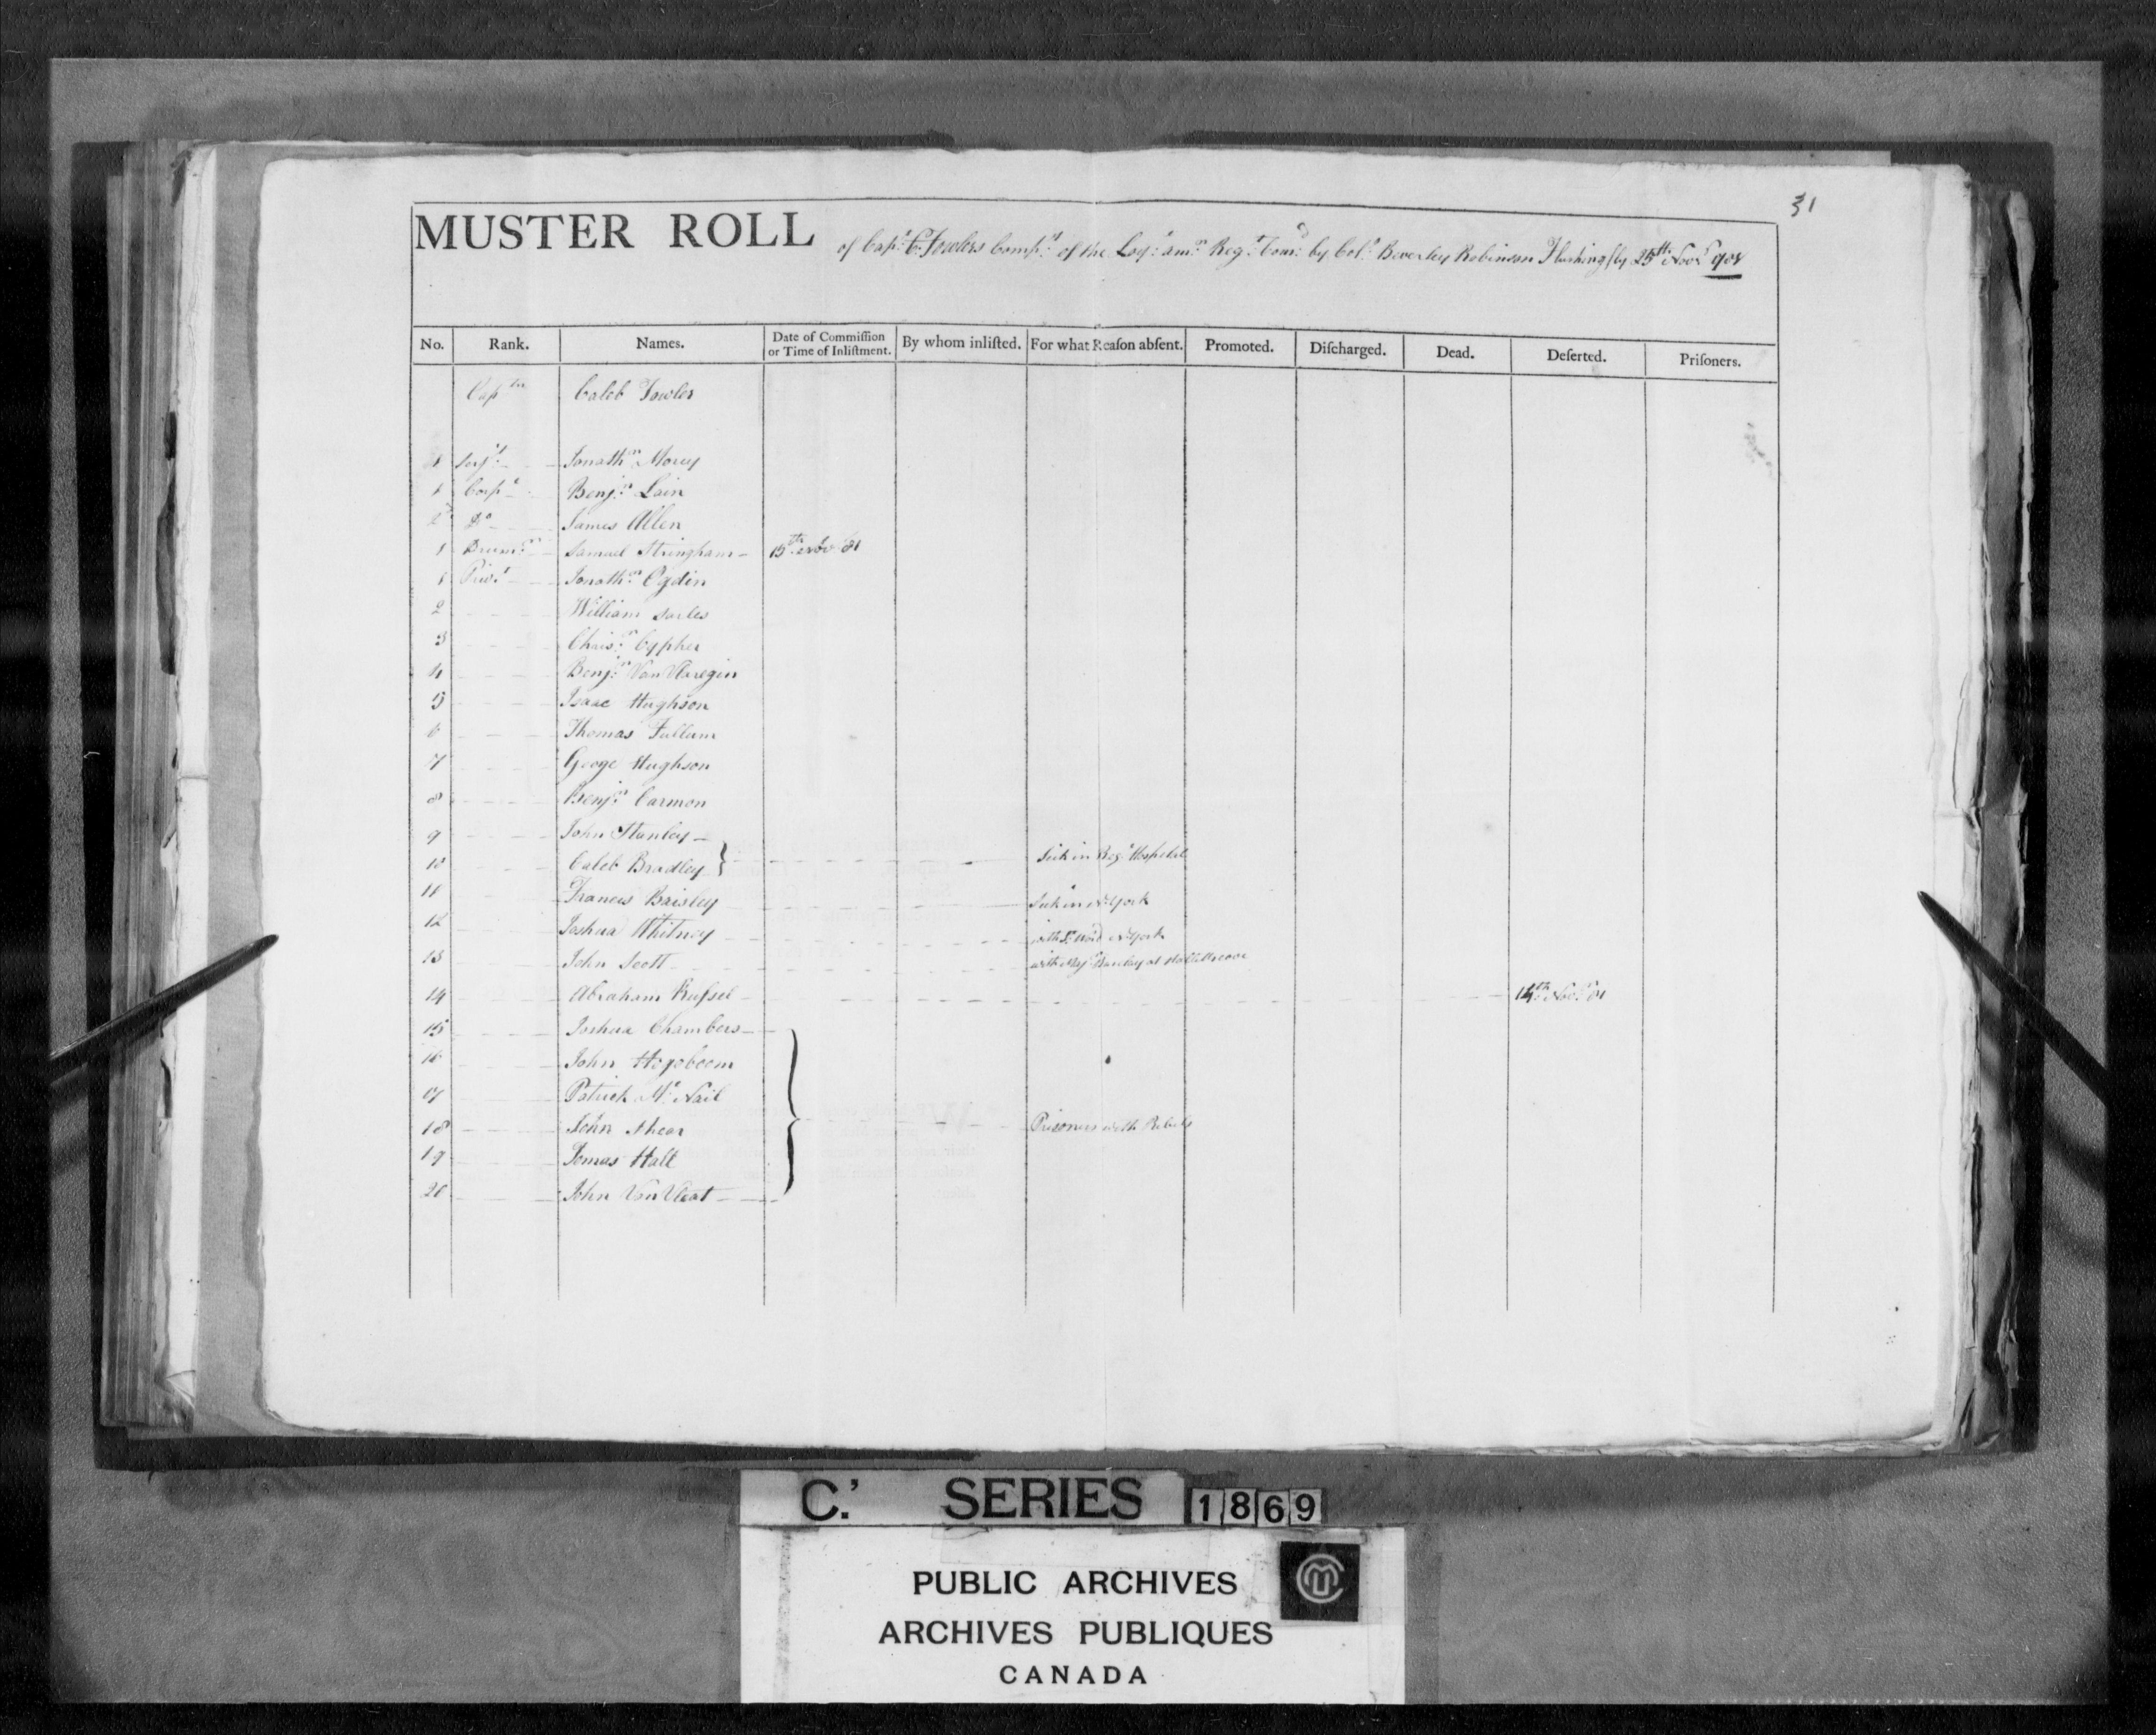 31
MUSTER ROLL of Capt. C. Fowlers Compy. of the Loy: amn. Regt. Comd. by Coll. Beverley Robinson Flushing fly 25th Novr.
No. Rank. Names. Date of Commiſſion or Time of Inliſtment. By whom inliſted. For what Reaſon abſent. Promoted. Diſcharged. Dead. Deſerted. Priſoners.
Captn Caleb Fowler
1 Serjt. Jonathn. Morey
1 Corpl Benjn. Lain
2 Do James Allen
1 Drumr. Samuel Stringham 15th Nov 81
1 Privt Jonathn. Ogdin
2 William Sarles
3 Chrisr. Cypher
4 Benjn. Van Vlaregin
5 Isaac Hughson
6 Thomas Fullum
7 Geoge Hughson
8 Benjn. Carmon
9 John Stanley
10 Caleb Bradley Sick in Regt. Hospital
11 Francis Baisley Sick in N. York
12 Joshua Whitney with Lt. Ward N. York
13 John Scott with Maj. Barclay at
14 Abraham Russel 14th Novr. 81
15 Joshua Chambers
16 John Hogoboom
17 Patrick Mc. Nail
18 John Shear Prisoners with Rebels
19 Jomas Hall
20 John Van Vleat
C.' SERIES 1869
PUBLIC ARCHIVES
ARCHIVES PUBLIQUES
CANADA